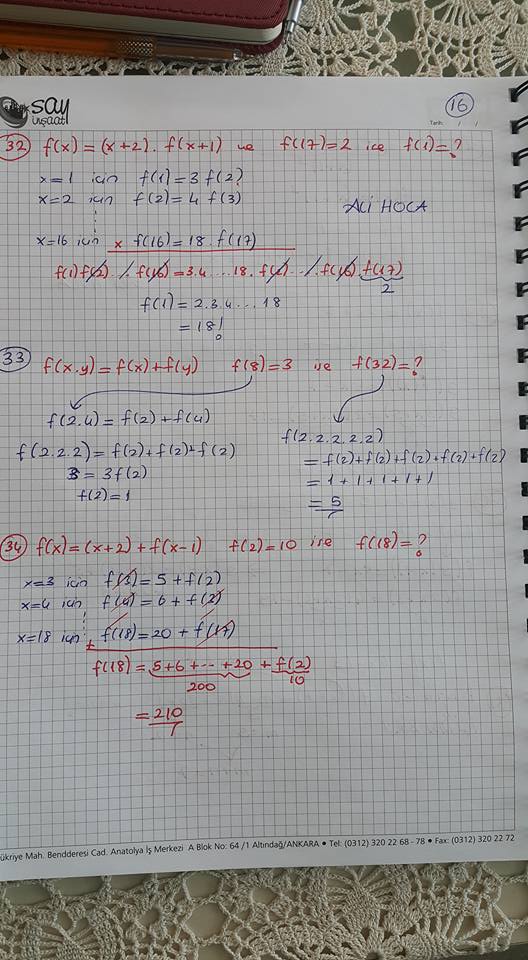 say
inşaat
Tarih: / /
16
32 f(x)=(x+2).f(x+1) ve f(17)=2 ise f(1)=?
x=1 için f(1)=3 f(2)
x=2 için f(2)=4 f(3)
ALİ HOCA
x=16 için x f(16)=18.f(17)
f(1)f(2)./.f(16)=3.4....18.f(2)../.f(16).f(17)
2
f(1)=2.3.4....18
=18!
33 f(x.y)=f(x)+f(y) f(8)=3 ise f(32)=?
f(2.4)=f(2)+f(4)
f(2.2.2)=f(2)+f(2)+f(2)
3=3f(2)
f(2)=1
f(2.2.2.2.2)
=f(2)+f(2)+f(2)+f(2)+f(2)
=1+1+1+1+1
=5
34 f(x)=(x+2)+f(x-1) f(2)=10 ise f(18)=?
x=3 için f(3)=5+f(2)
x=4 için f(4)=6+f(3)
x=18 için + f(18)=20+f(17)
f(18)=5+6+...+20+f(2)
200 10
=210
ükriye Mah. Bendderesi Cad. Anatolya İş Merkezi A Blok No: 64 /1 Altındağ/ANKARA • Tel: (0312) 320 22 68 - 78 • Fax: (0312) 320 22 72